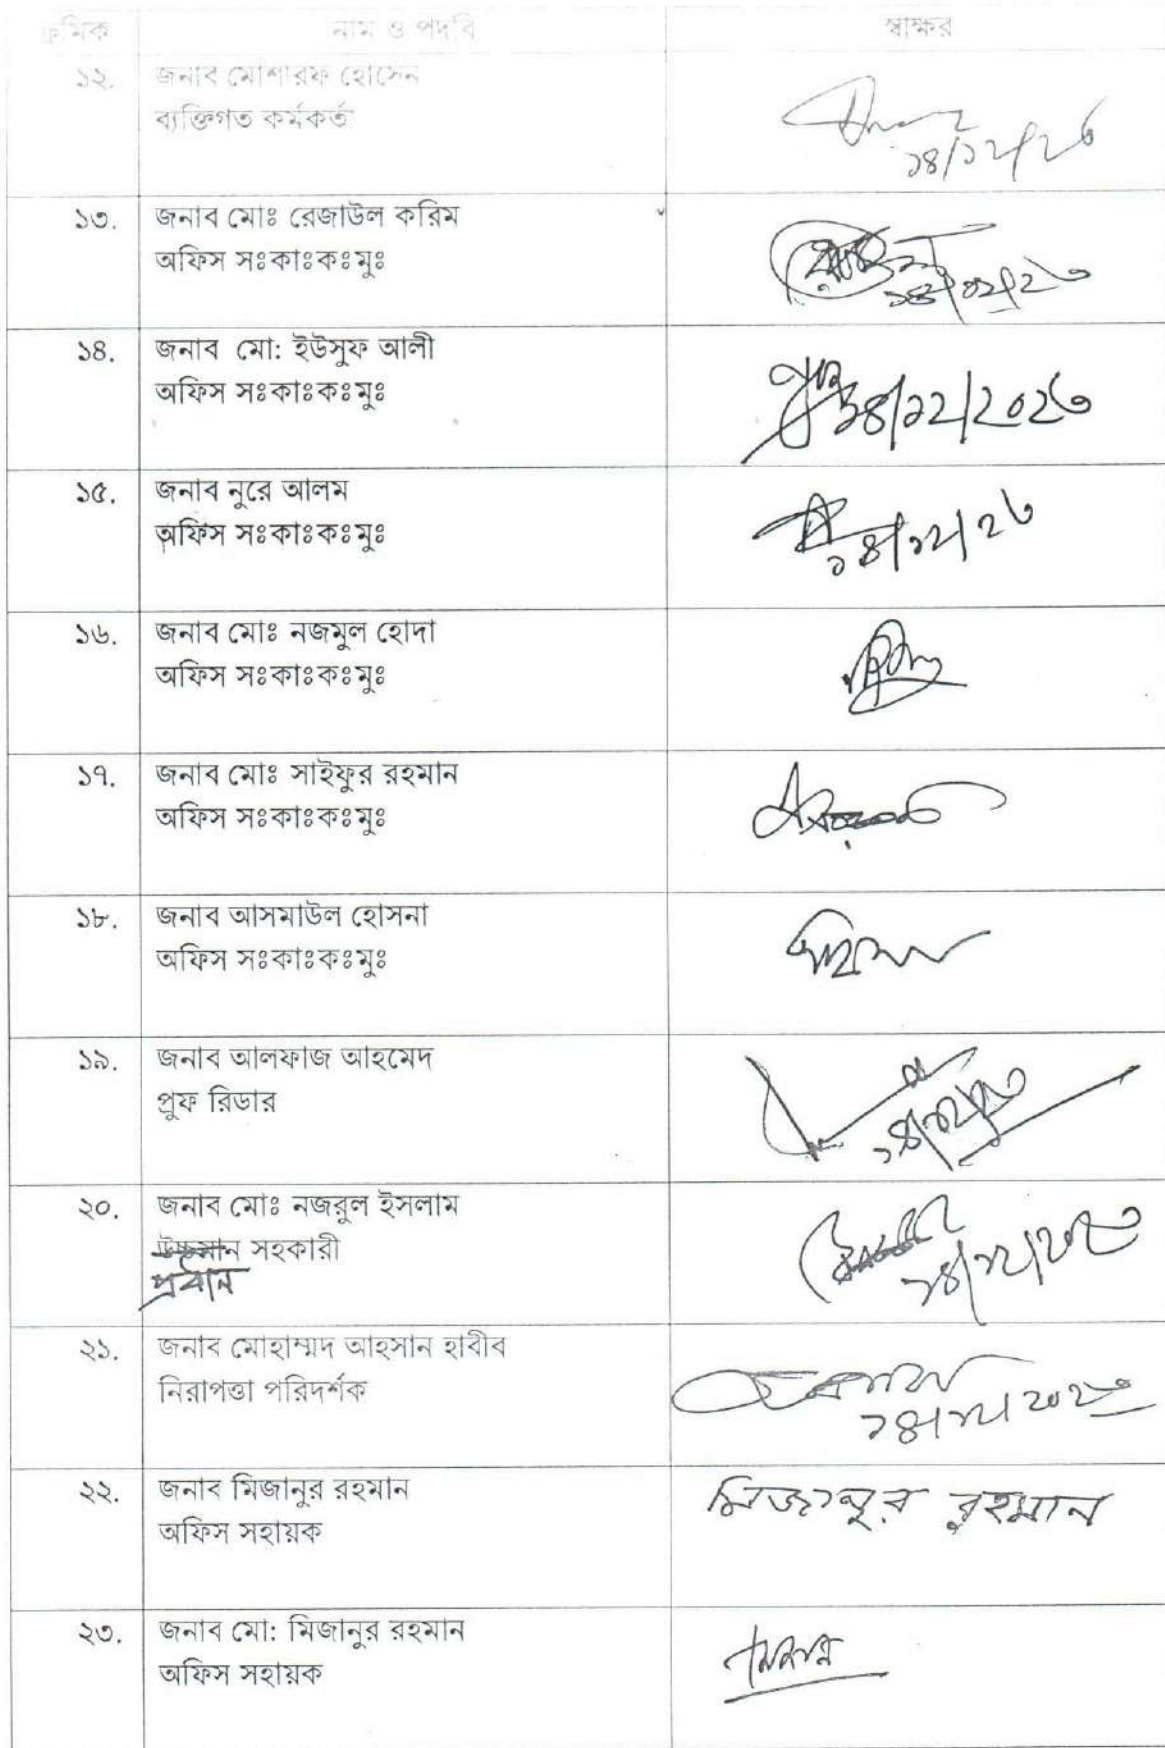 ক্রমিক নাম ও পদবি স্বাক্ষর
১২. জনাব মোশারফ হোসেন
ব্যক্তিগত কর্মকর্তা
১৪/১২/২৩
১৩. জনাব মোঃ রেজাউল করিম
অফিস সঃকাঃকঃমুঃ
১৪/১২/২৩
১৪. জনাব মো: ইউসুফ আলী
অফিস সঃকাঃকঃমুঃ
১৪/১২/২০২৩
১৫. জনাব নুরে আলম
অফিস সঃকাঃকঃমুঃ
১৪/১২/২৩
১৬. জনাব মোঃ নজমুল হোদা
অফিস সঃকাঃকঃমুঃ
১৭. জনাব মোঃ সাইফুর রহমান
অফিস সঃকাঃকঃমুঃ
১৮. জনাব আসমাউল হোসনা
অফিস সঃকাঃকঃমুঃ
১৯. জনাব আলফাজ আহমেদ
প্রুফ রিডার
১৪/১২/২৩
২০. জনাব মোঃ নজরুল ইসলাম
উচ্চমান সহকারী
প্রধান
১৪/১২/২৩
২১. জনাব মোহাম্মদ আহসান হাবীব
নিরাপত্তা পরিদর্শক
১৪/১২/২০২৩
২২. জনাব মিজানুর রহমান মিজানুর রহমান
অফিস সহায়ক
২৩. জনাব মো: মিজানুর রহমান
অফিস সহায়ক